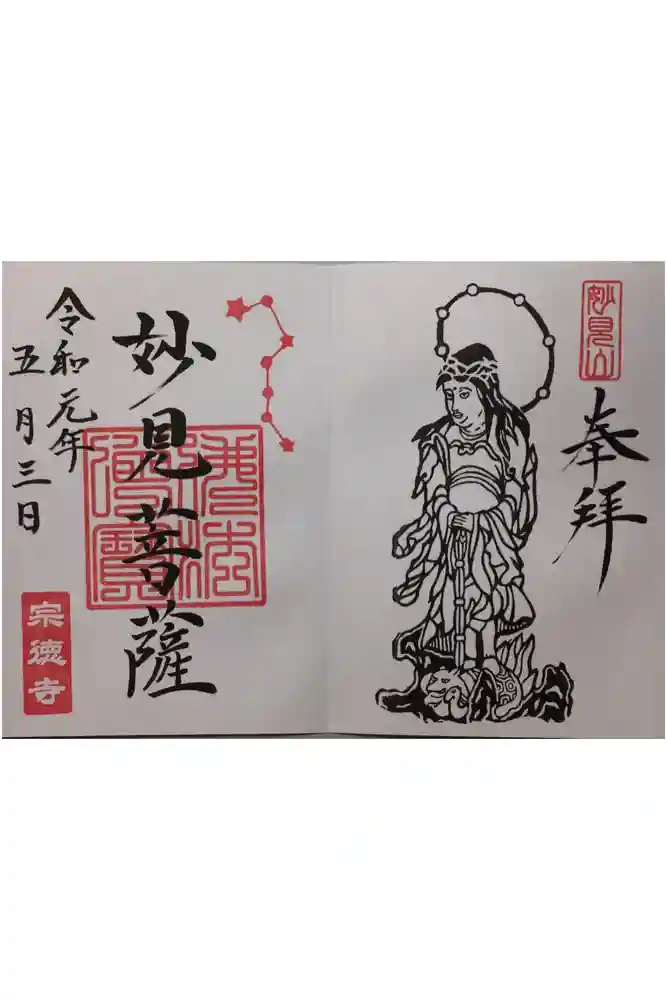 妙見山
奉拝
妙見菩薩
令和元年
五月三日
宗徳寺